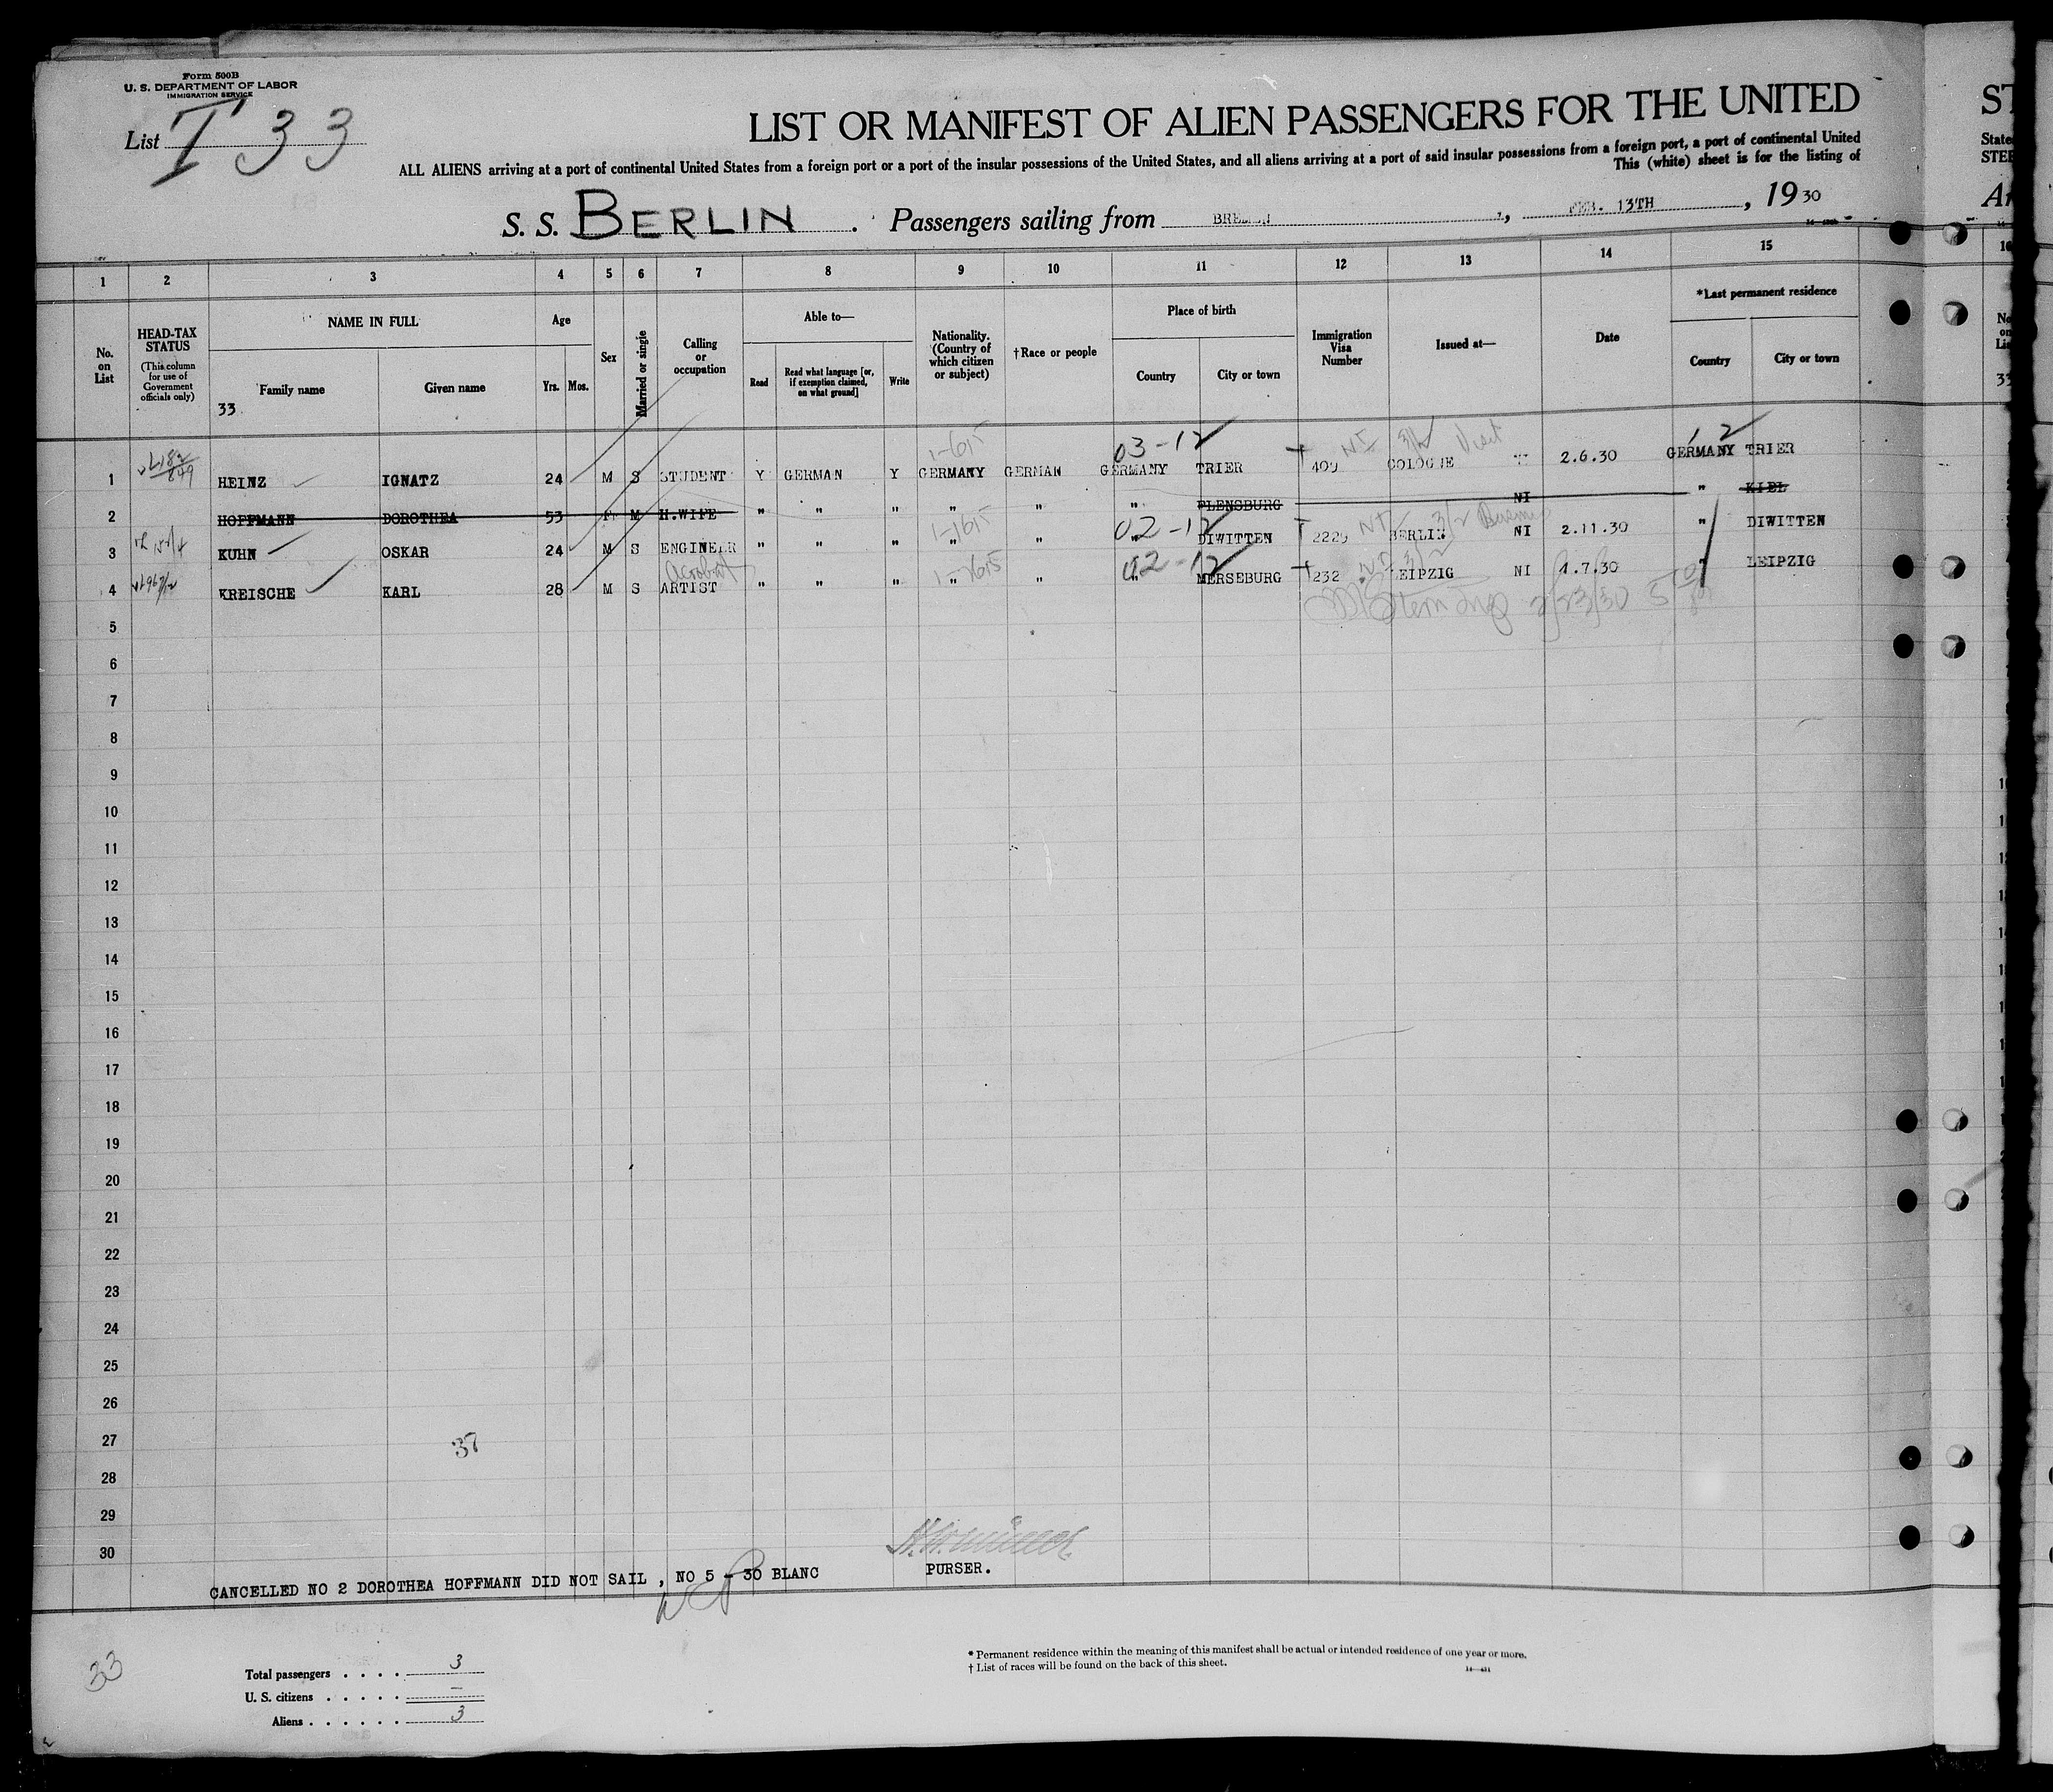 Form 500B
U. S. DEPARTMENT OF LABOR
IMMIGRATION SERVICE
List I 33
LIST OR MANIFEST OF ALIEN PASSENGERS FOR THE UNITED
ALL ALIENS arriving at a port of continental United States from a foreign port or a port of the insular possessions of the United States, and all aliens arriving at a port of said insular possessions from a foreign port, a port of continental United
This (white) sheet is for the listing of
S. S. BERLIN . Passengers sailing from BREMEN , FEB. 13TH , 19 30
1 2 3 4 5 6 7 8 9 10 11 12 13 14 15
No. on List
HEAD-TAX STATUS
(This column for use of Government officials only)
NAME IN FULL
Family name Given name
33
Age
Yrs. Mos.
Sex
Married or single
Calling or occupation
Able to—
Read
Read what language [or, if exemption claimed, on what ground]
Write
Nationality. (Country of which citizen or subject)
†Race or people
Place of birth
Country City or town
Immigration Visa Number
Issued at—
Date
*Last permanent residence
Country City or town
03-12 NI 3/2 Visit 12
1 HEINZ IGNATZ 24 M S STUDENT Y GERMAN Y GERMANY GERMAN GERMANY TRIER 409 COLOGNE 2.6.30 GERMANY TRIER
2 HOFFMANN DOROTHEA 53 F M H.WIFE " " " " " " FLENSBURG NI " KIEL
02-12 NI 3/2
3 KUHN OSKAR 24 M S ENGINEER " " " " " " DIWITTEN 2229 BERLIN NI 2.11.30 " DIWITTEN
Acrobat 02-12 3/2
4 KREISCHE KARL 28 M S ARTIST " " " " " " MERSEBURG 232 LEIPZIG NI 1.7.30 " LEIPZIG
2/23/30
5
6
7
8
9
10
11
12
13
14
15
16
17
18
19
20
21
22
23
24
25
26
27
37
28
29
30
CANCELLED NO 2 DOROTHEA HOFFMANN DID NOT SAIL , NO 5 – 30 BLANC
PURSER.
33
Total passengers . . . . 3
U. S. citizens . . . . . –
Aliens . . . . . . 3
* Permanent residence within the meaning of this manifest shall be actual or intended residence of one year or more.
† List of races will be found on the back of this sheet.